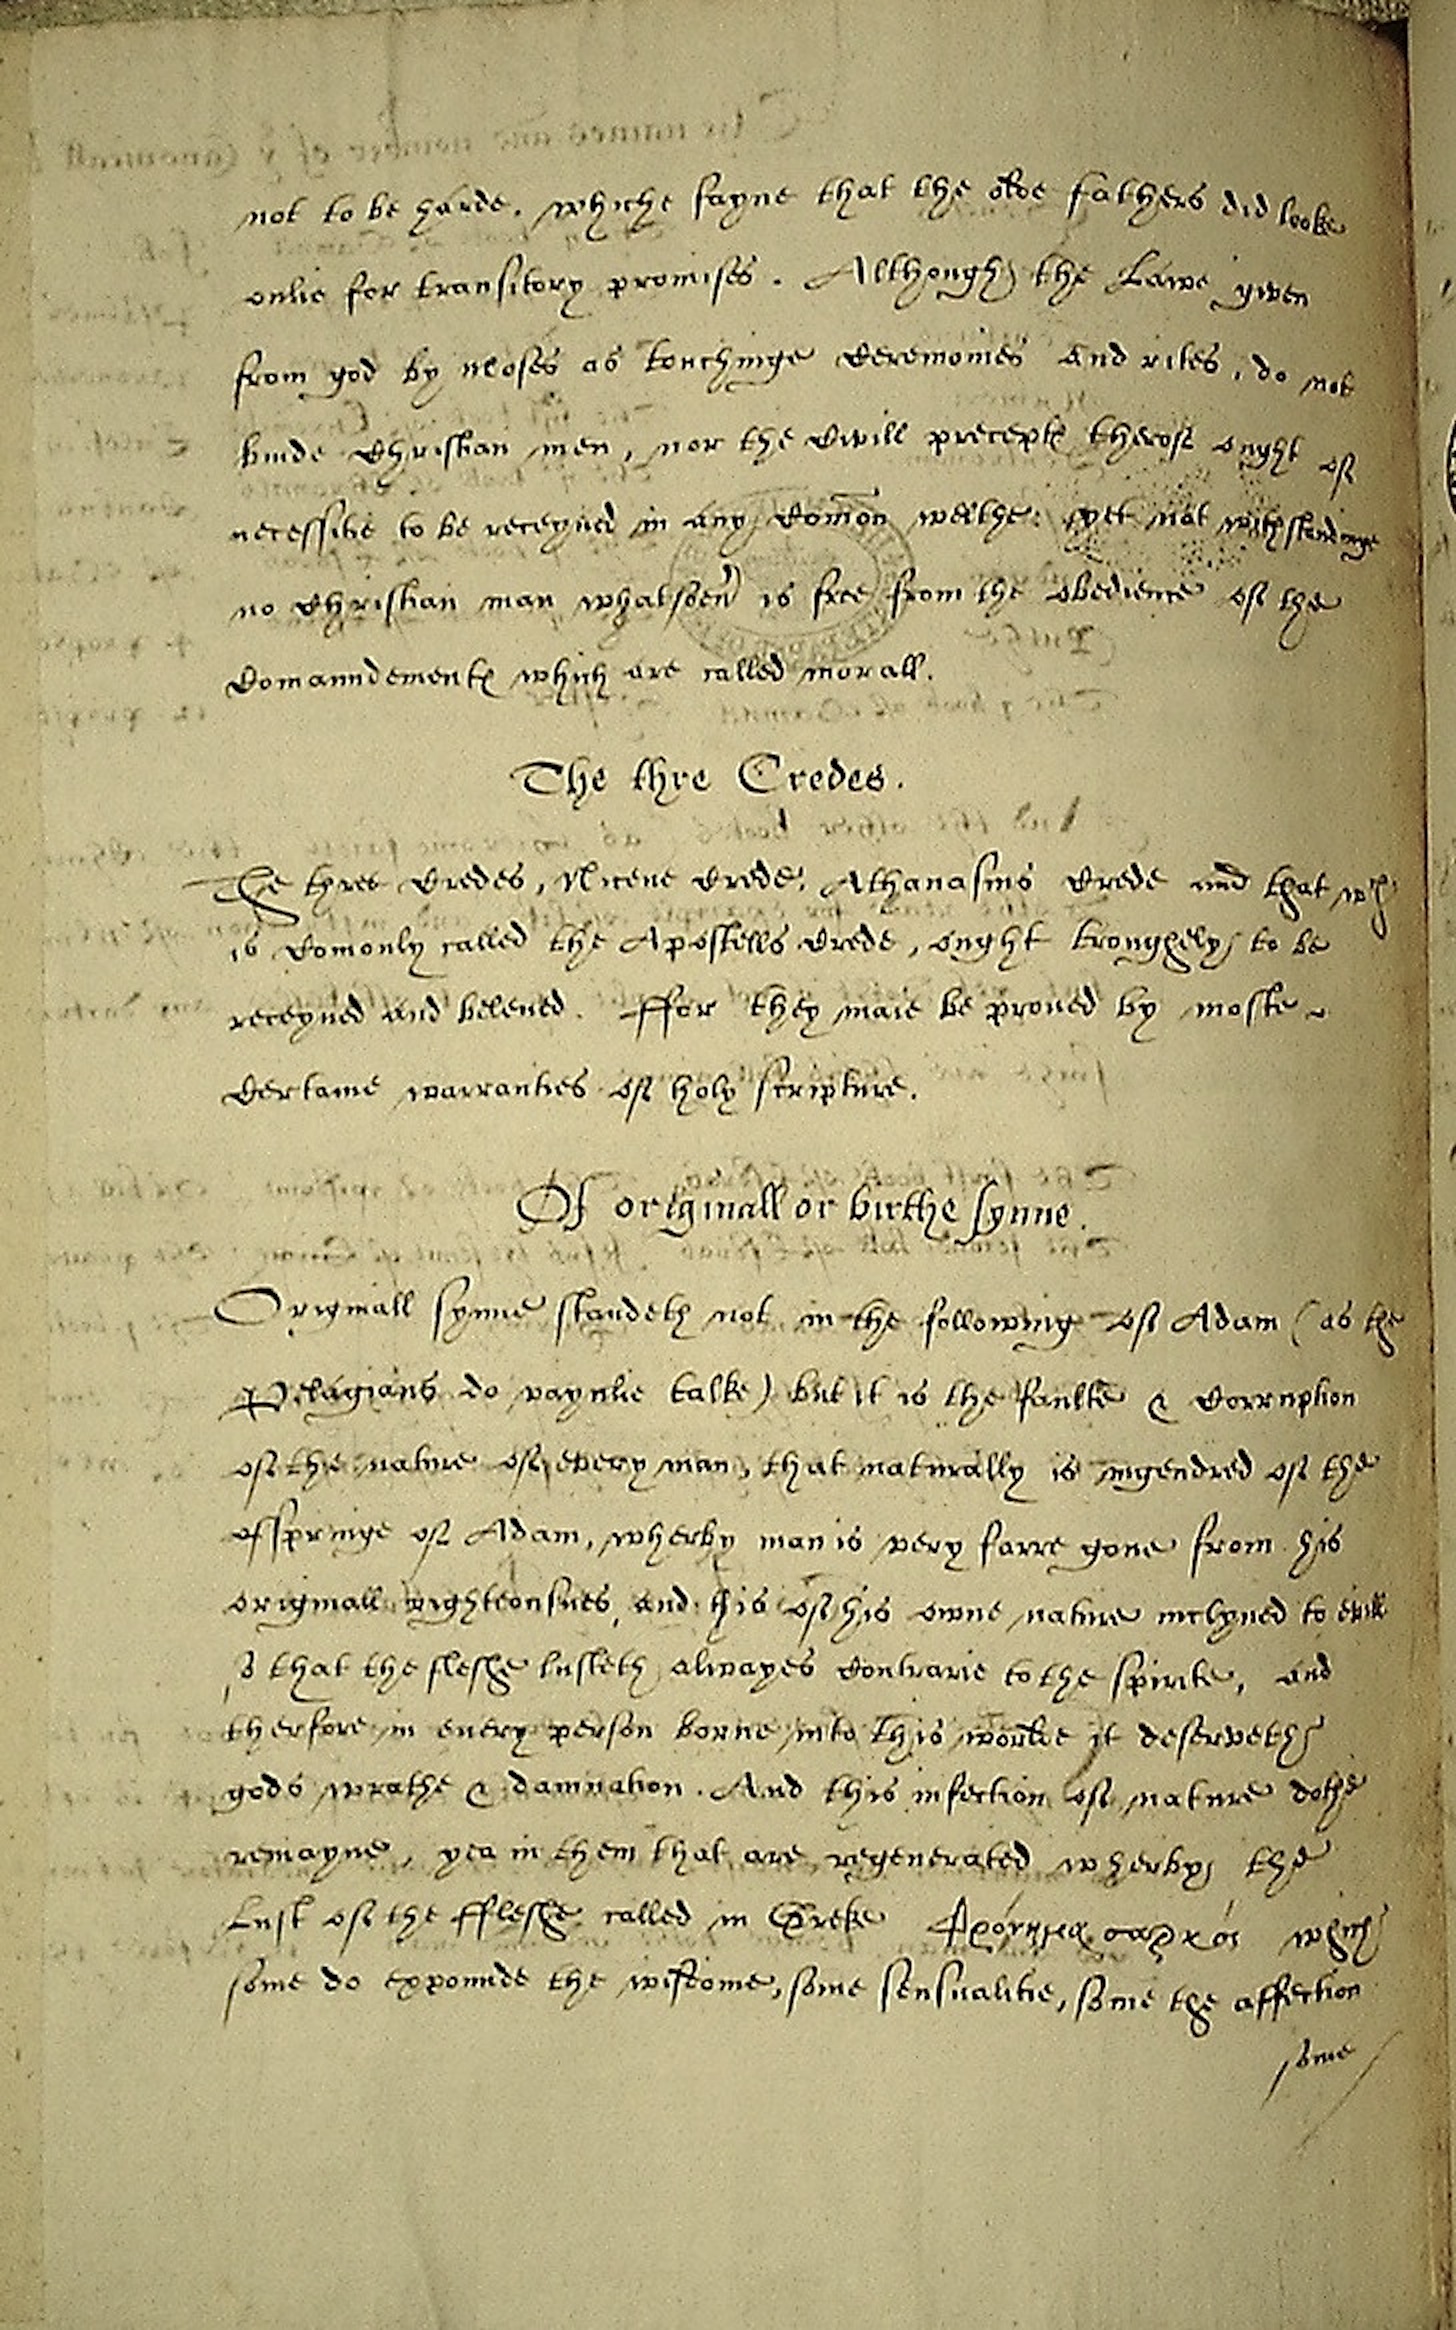 not to be harde. whiche fayne that the olde fathers did looke
onlie for transitory promises. Although the Lawe given
from god by Moses as touchinge Ceremonies and rites, do not
binde Christian men, nor the Civill precepts therof ought of
necessitie to be receyued in any Comon welthe: yet not withstandinge
no Christian man whatsoeu is free from the obedience of the
Comaundements which are called morall.
The thre Credes.
The thre Credes, Nicene Crede, Athanasius Crede and that wch
is Comonly called the Apostells Crede, ought troughely to be
receyued and beleued. ffor they maie be proued by moste
Certaine warranties of holy scripture.
Of originall or birthe synne.
Originall synne standeth not in the following of Adam (as the
Pelagians do vaynlie talke) but it is the faulte & Corruption
of the nature of every man, that naturally is ingendred of the
offspringe of Adam, wherby man is very farre gone from his
originall righteousnes, and his of his owne nature inclyned to evill
so that the fleshe lusteth alwayes Contrarie to the spirite, and
therfore in euery person borne into this worlde it deserveth
gods wrathe & damnation. And this infection of nature dothe
remayne, yea in them that are regenerated wherby the
Lust of the fflesshe called in Greke φρόνημα σαρκός which
some do expounde the wisdome, some sensualitie, some the affection
some